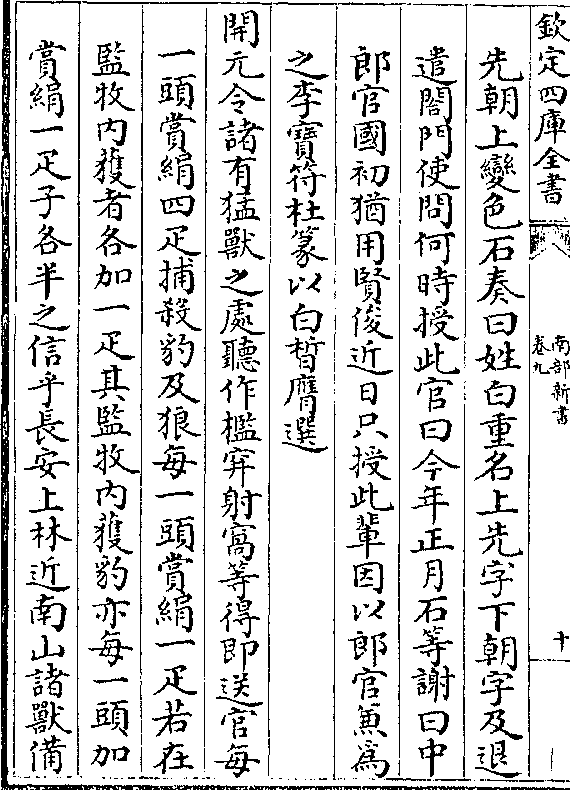 欽定四庫全書
南部新書
卷九
十
先朝上變色石奏曰姓白重名上先字下朝字及退
遣閤門使問何時授此官曰今年正月石等謝曰中
郎官國初猶用賢俊近日只授此輩因以郎官兼為
之李寶符杜篆以白晳膺選
開元令諸有猛獸之處聽作檻穽射窩等得即送官每
一頭賞絹四疋捕殺豹及狼每一頭賞絹一疋若在
監牧内獲者各加一疋其監牧内獲豹亦每一頭加
賞絹一疋子各半之信乎長安上林近南山諸獸備